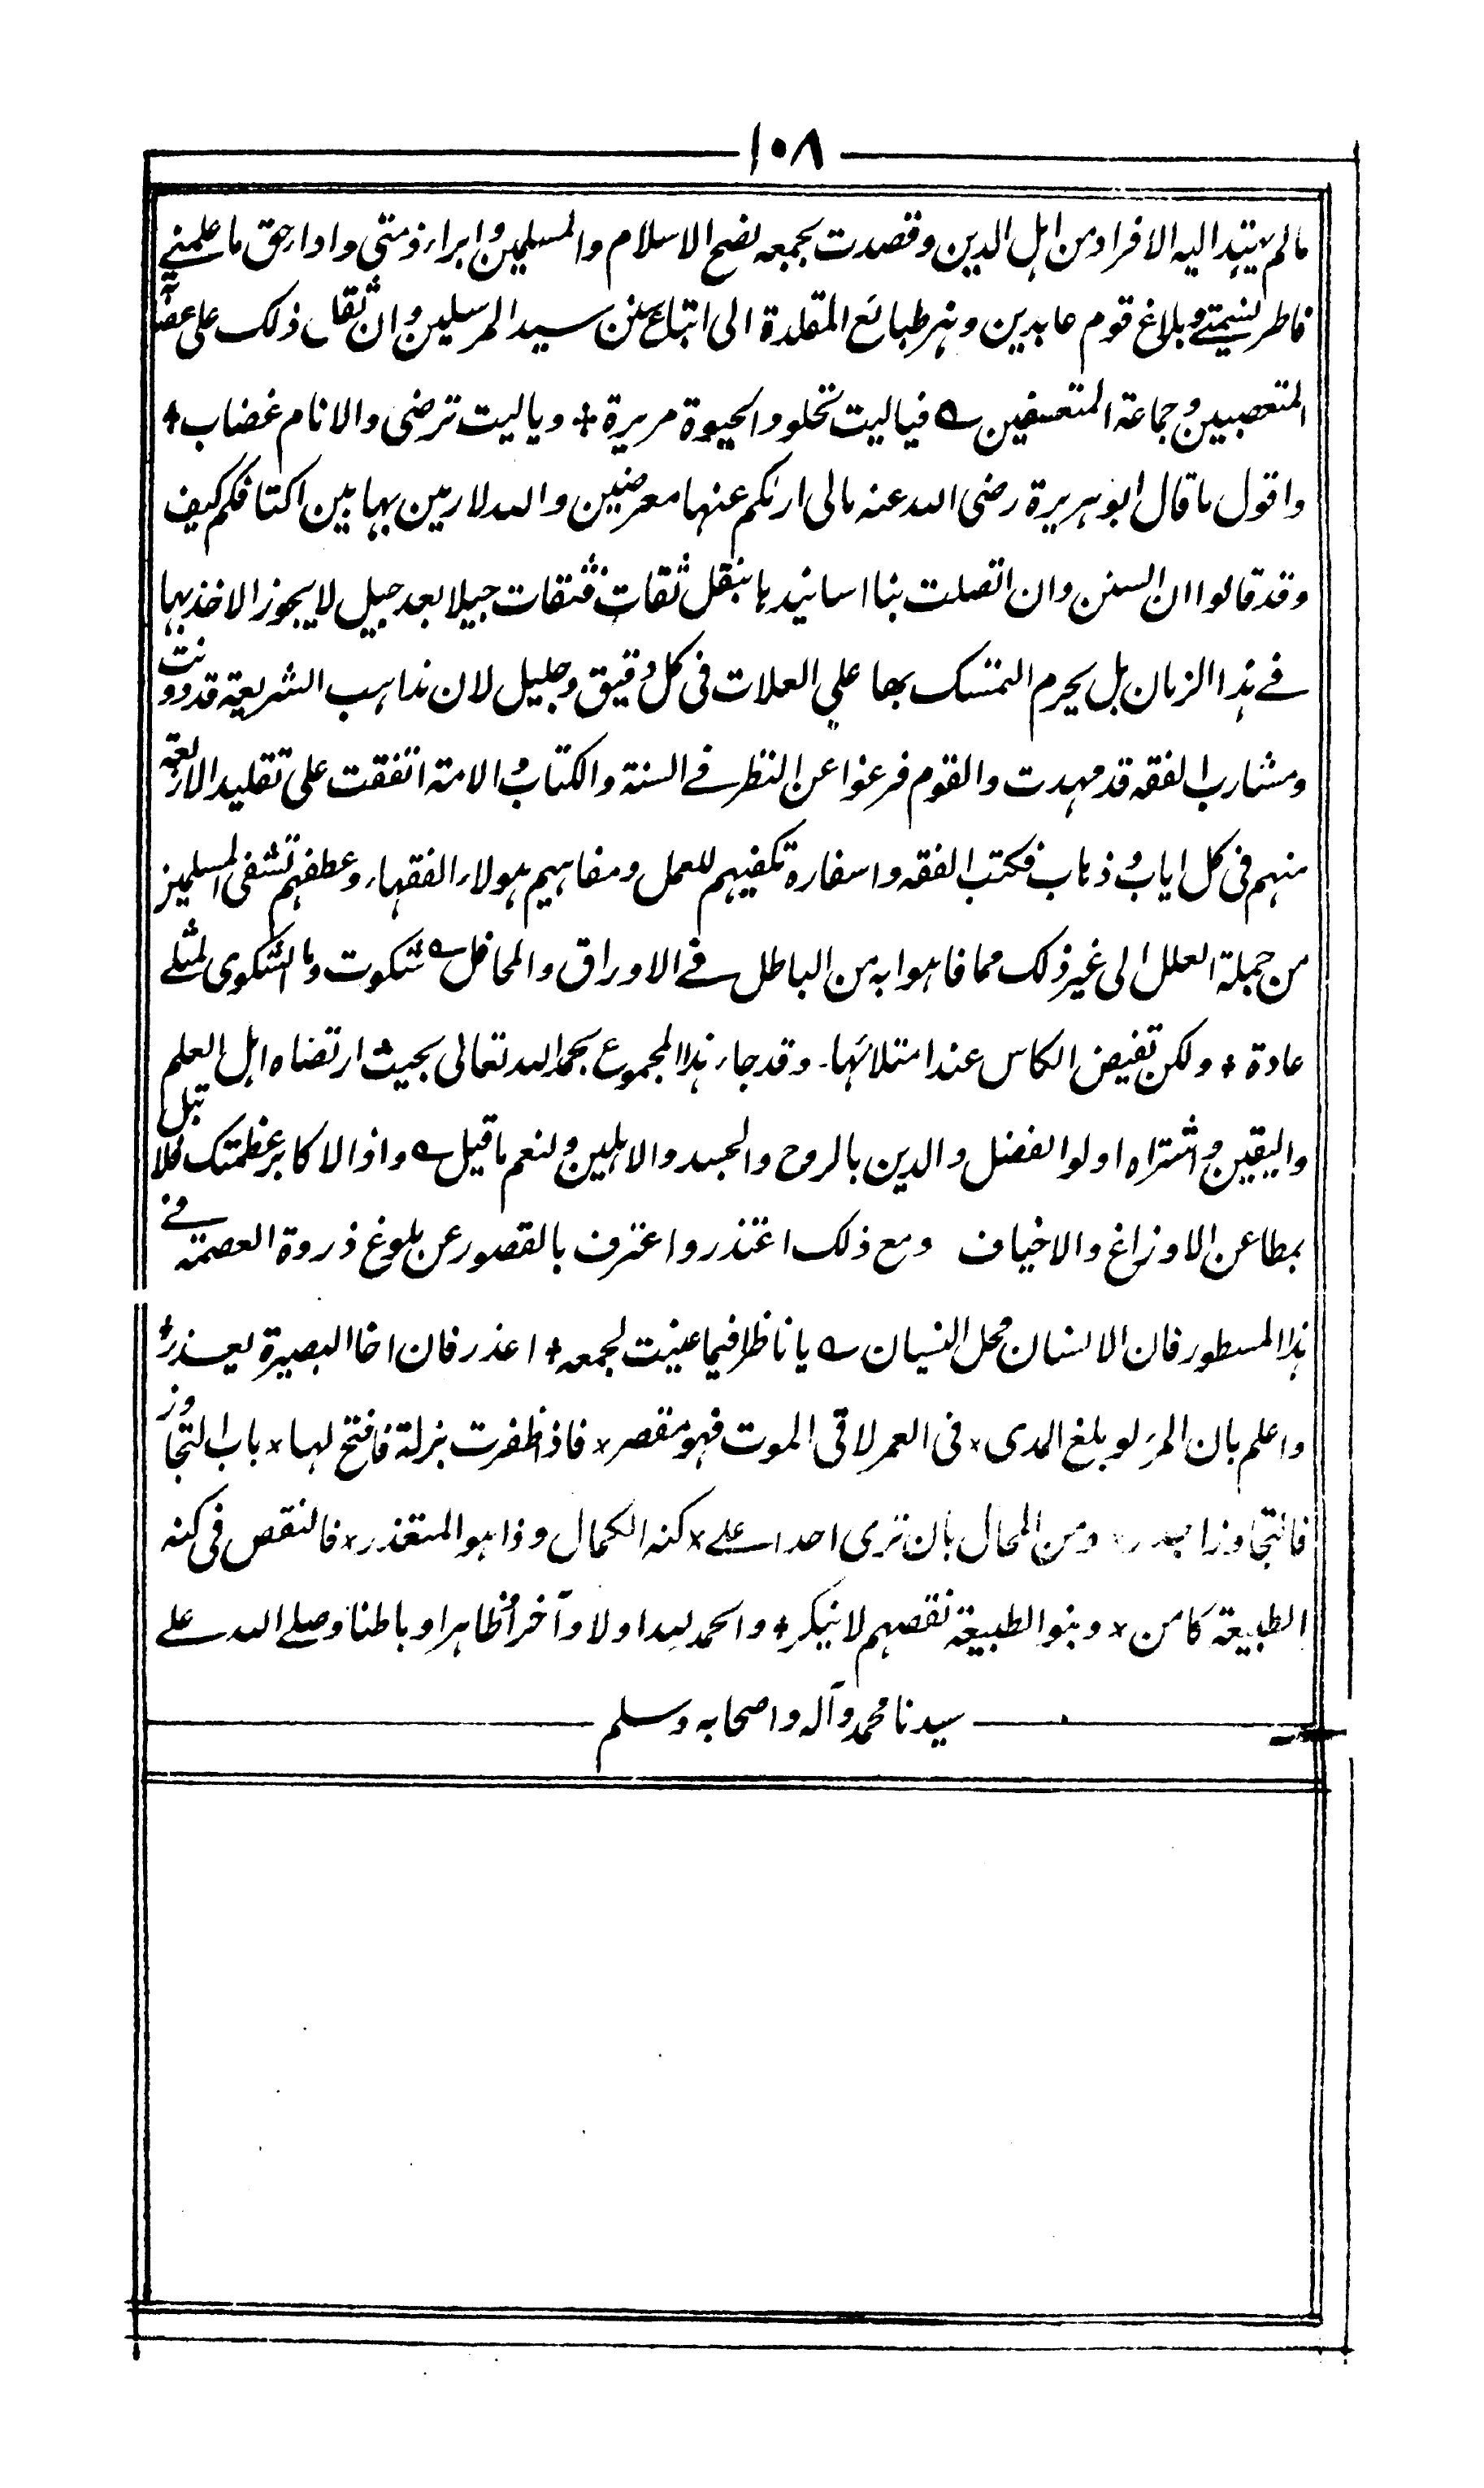 ١٠٨
مالم يهتد اليه الافراد من اهل الدين وقصدت بجمعه نصح الاسلام والمسلمين وابراء ذمتي واداء حق ما علمني
فاطر نسمتي وبلاغ قوم عابدين ونهر طبائع المقلدة الى اتباع سنن سيد المرسلين وان ثقل ذلك على عصابة
المتعصبين وجماعة المتعسفين ؎ فياليت تحلو والحيوة مريرة + وياليت ترضى والانام غضاب +
واقول ما قال ابو هريرة رضى الله عنه مالى اراكم عنها معرضين والله لارمين بها بين اكتافكم كيف
وقد قالوا ان السنن وان اتصلت بنا اسانيدها بنقل ثقات فثقات جيلا بعد جيل لا يجوز الاخذ بها
فى هذا الزمان بل يحرم التمسك بها على العلات فى كل دقيق وجليل لان مذاهب الشريعة قد دونت
ومشارب الفقه قد مهدت والقوم فرغوا عن النظر فى السنة والكتاب والامة اتفقت على تقليد الاربعة
منهم فى كل اياب وذهاب فكتب الفقه واسفاره تكفيهم للعمل ومفاهيم هولاء الفقهاء وعطفهم تشفى المسلمين
من جملة العلل الى غير ذلك مما فاهوا به من الباطل فى الاوراق والمحافل ؎ شكوت وما الشكوى لمثلى
عادة + ولكن تفيض الكاس عند امتلائها۔ وقد جاء هذا المجموع بحمد الله تعالى بحيث ارتضاه اهل العلم
واليقين واشتراه اولوا الفضل والدين بالروح والجسد والاهلين ولنعم ما قيل ؎ واذ الاكابر عظمتك فلا تبل
بمطاعن الاوزاغ والاخياف ومع ذلك اعتذر واعترف بالقصور عن بلوغ ذروة العصمة فى
هذا المسطور فان الانسان محل النسيان ؎ يا ناظرا فيما عنيت لجمعه + اعذر فان اخا البصيرة يعذر +
واعلم بان المرء لو بلغ المدى × فى العمر لاقى الموت فهو مقصر × فاذ ظفرت بزلة فافتح لها × باب التجاوز
فالتجاوز اجدر × ومن المحال بان ترى احدا على × كنه الكمال وذا هو المتعذر × فالنقص فى كنه
الطبيعة كامن × وبنو الطبيعة نقصهم لا ينكر + والحمد لله اولا وآخرا وظاهرا وباطنا وصلى الله على
سيدنا محمد وآله واصحابه وسلم